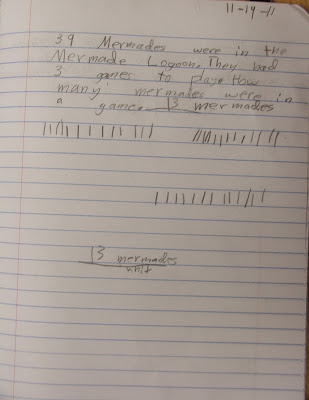 11-14-11
39 Mermades were in the
Mermade Lagoon. They had
3 games to play. How
many mermades were in
a game. 13 mermades
13 mermades
unit